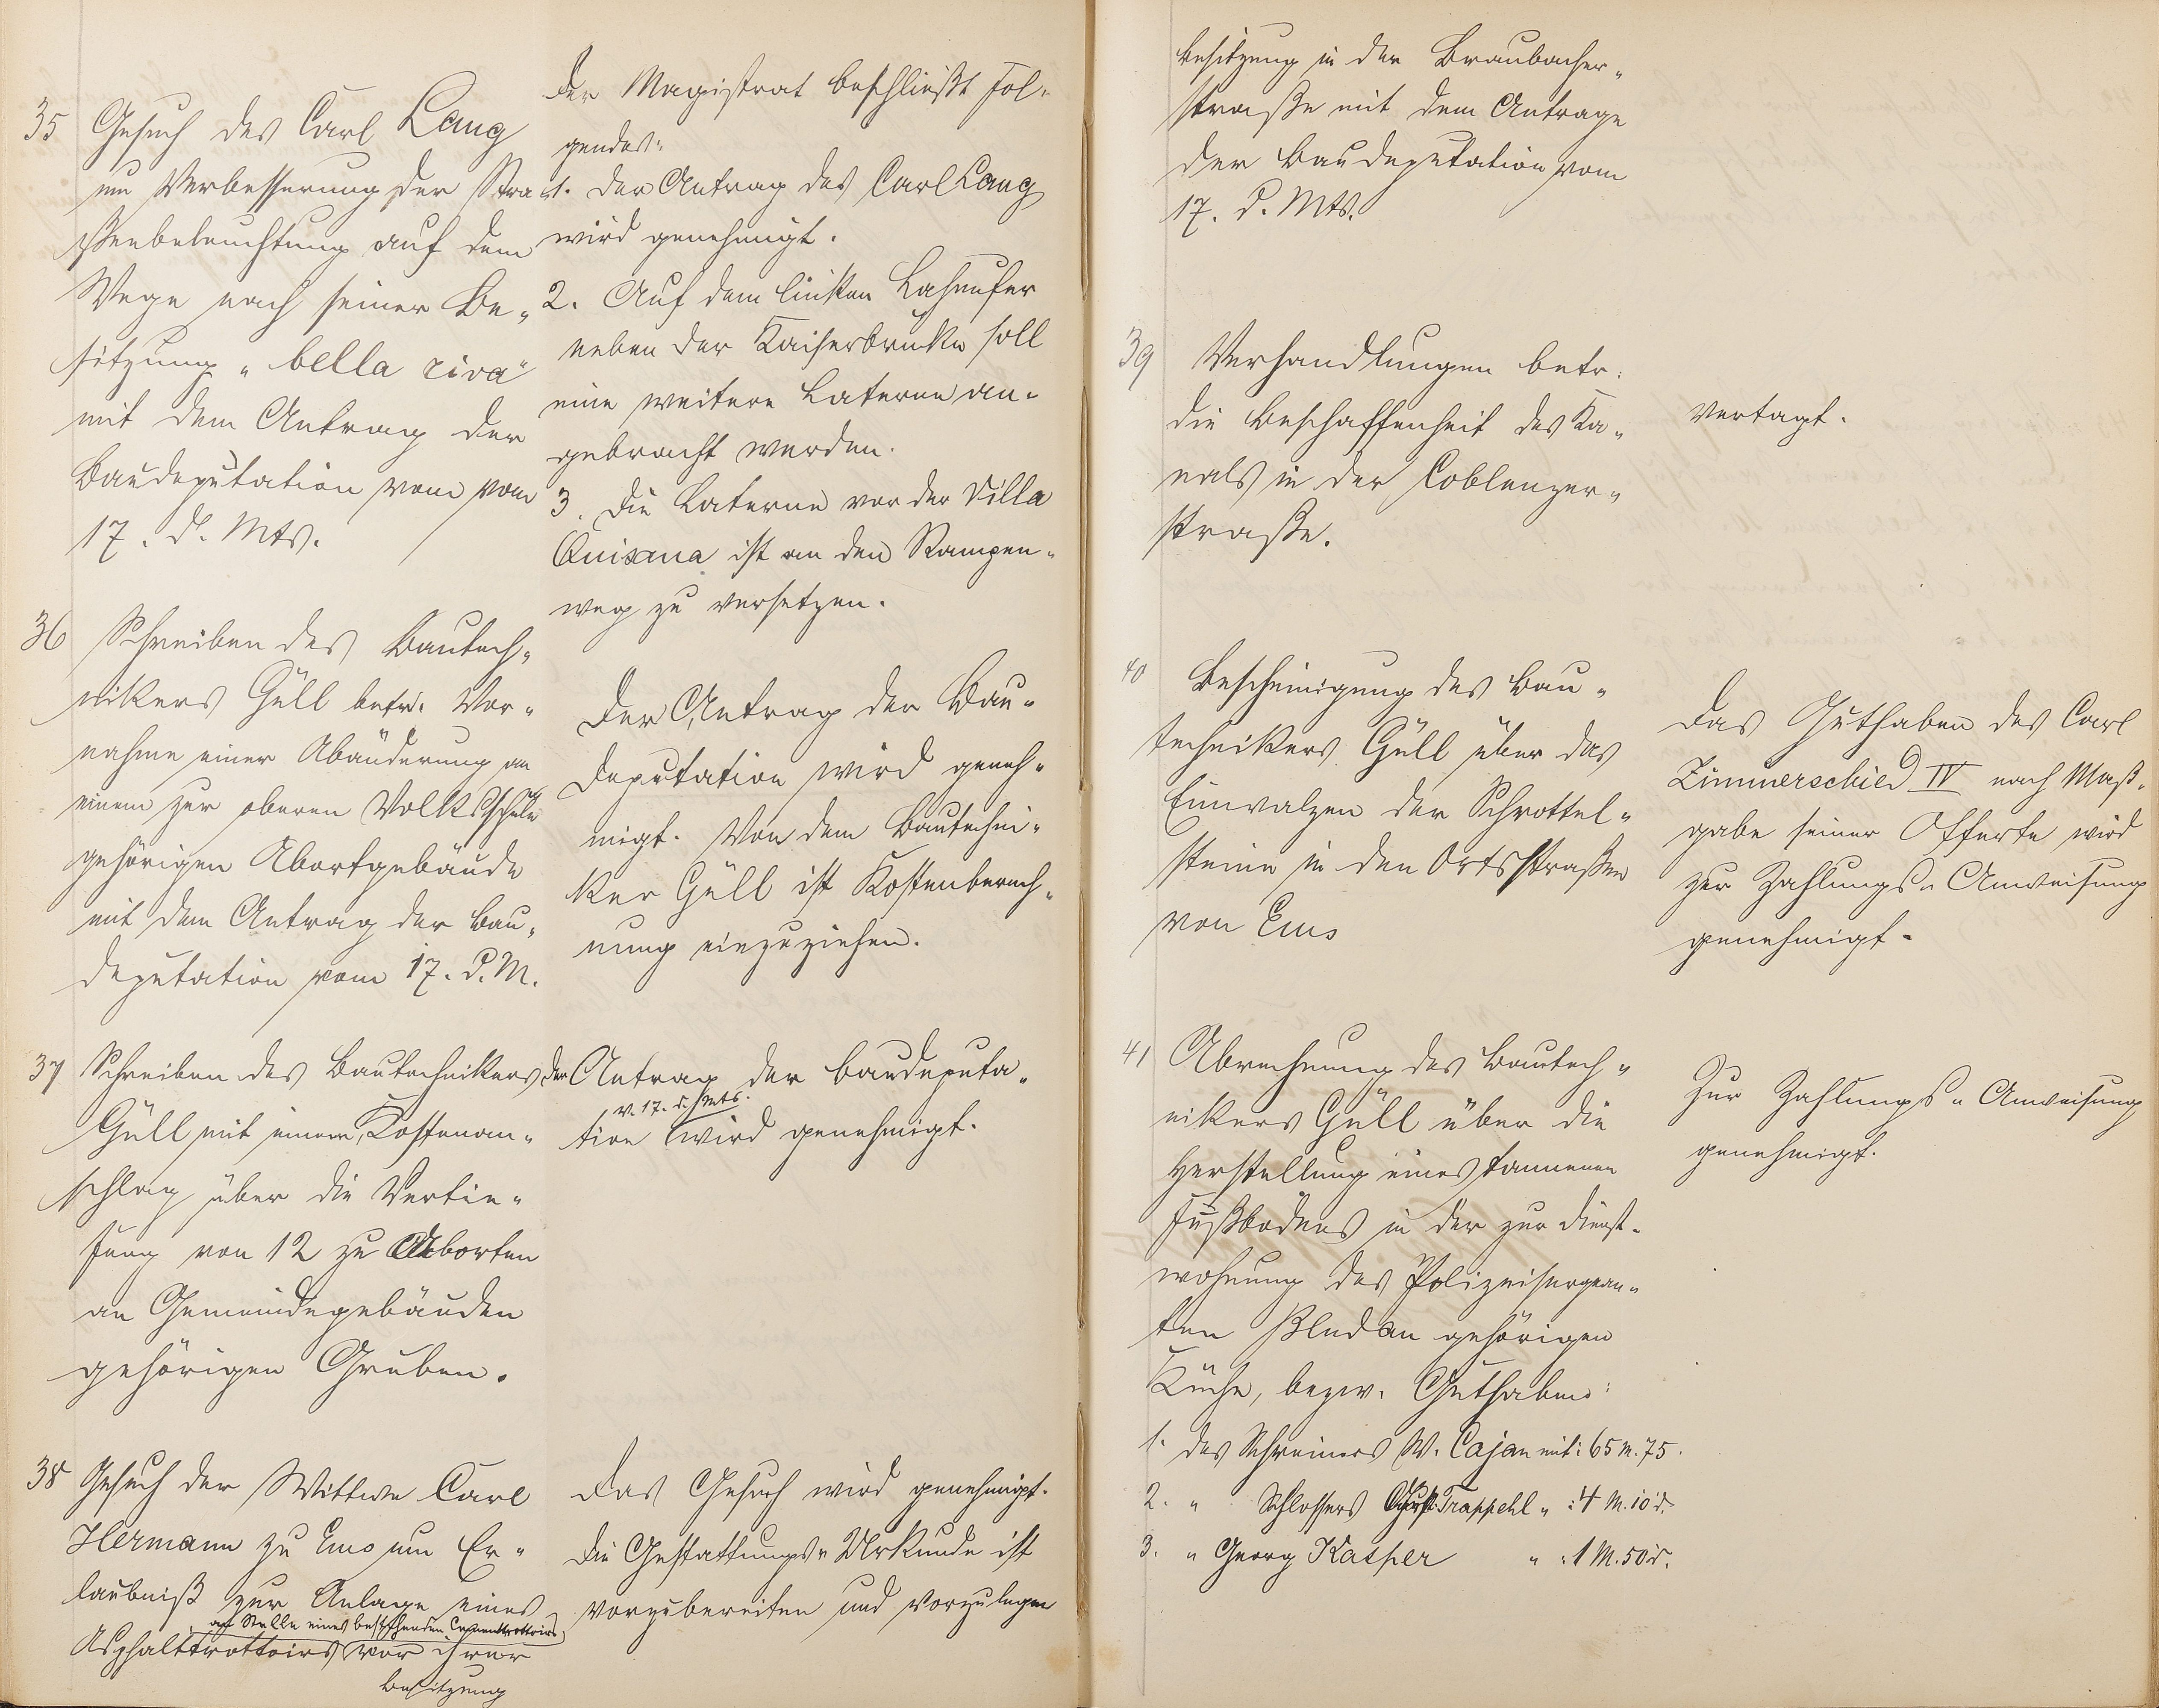 35 Gesuch des Carl Lang
um Verbesserung der Stra
ßenbeleuchtung auf dem
Wege nach seiner Be„
sitzung „bella riva“
mit dem Antrag der
Baudeputation vom vom
17. d. Mts.
Der Magistrat beschließt Fol„
gendes:
1. Der Antrag des Carl Lang
wird genehmigt.
2. Auf dem linken Lahnufer
neben der Kaiserbrücke soll
eine weitere Laterne an„
gebracht werden.
3. Die Laterne vor der Villa
Quisana ist an den Rampen„
weg zu versetzen.
36 Schreiben des Bautech„
nikers Güll betr. Vor„
nahme einer Abänderung an
einem zur oberen Volksschule
gehörigen Abortgebäude
mit dem Antrag der Bau„
deputation vom 17. d. M.
Der Antrag der Bau„
deputation wird geneh„
migt. Von dem Bautechni„
ker Güll ist Kostenberech„
nung einzuziehen.
37 Schreiben des Bautechnikers
Güll mit einem Kostenan„
schlag über die Vertie„
fung von 12 zu Aborten
an Gemeindegebäuden
gehörigen Gruben.
Der Antrag der Baudeputa„
v. 17. d. Mts.
tion wird genehmigt.
38 Gesuch der Wittwe Carl
Hermann zu Ems um Er„
laubniß zur Anlage eines
an Stelle eines bestehenden Cementtrottoirs
Asphalttrottoirs vor ihrer
Besitzung
Das Gesuch wird genehmigt.
Die Gestattungs„Urkunde ist
vorzubereiten und vorzulegen
Besitzung in der Braubacher„
straße mit dem Antrage
der Baudeputation vom
17. d. Mts.
39 Verhandlungen betr.
die Beschaffenheit des Ka„
nals in der Coblenzer„
straße.
Vertagt.
40 Bescheinigung des Bau„
technikers Güll über das
Einwalzen der Schrottel„
steine in den Ortsstraßen
von Ems
Das Guthaben des Carl
Zimmerschied IV nach Maß„
gabe seiner Offerte wird
zur Zahlungs„Anweisung
genehmigt.
41 Abrechnung des Bautech„
nikers Güll über die
Herstellung eines tannenen
Fußbodens in der zur Dienst„
wohnung des Polizeisergean„
ten gehörigen
Küche, bezw. Guthaben:
1. des Schreiners W. Cajan mit: 65 M. 75.
2. „ Schlossers Trappehl „ : 4 M. 10 d.
3. „ Georg Kasper „ : 1 M. 50 d.
Zur Zahlungs„Anweisung
genehmigt.